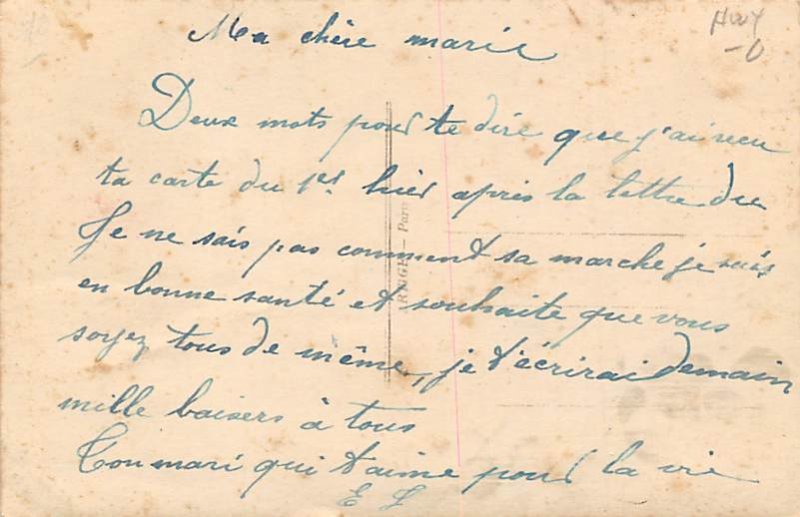 Ma chère marie
Deux mots pour te dire que j'ai recu
ta carte du 1er hier après la lettre du
Je ne sais pas comment sa marche je suis
en bonne santé et souhaite que vous
soyez tous de même, je t'écrirai demain
mille baisers à tous
Ton mari qui t'aime pour la vie
E L